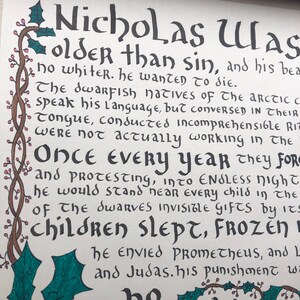 Nicholas Was
older than sin, and his bea
no whiter. he wanted to die.
The dwarfish natives of the arctic c
speak his language, but conversed in their
tongue, conducted incomprehensible ri
were not actually working in the
Once every year they for
and protesting, into Endless Night
he would stand near every child in the
of the dwarves invisible gifts by its
children slept, frozen
he envied Prometheus, and L
and Judas. his punishment w
ho